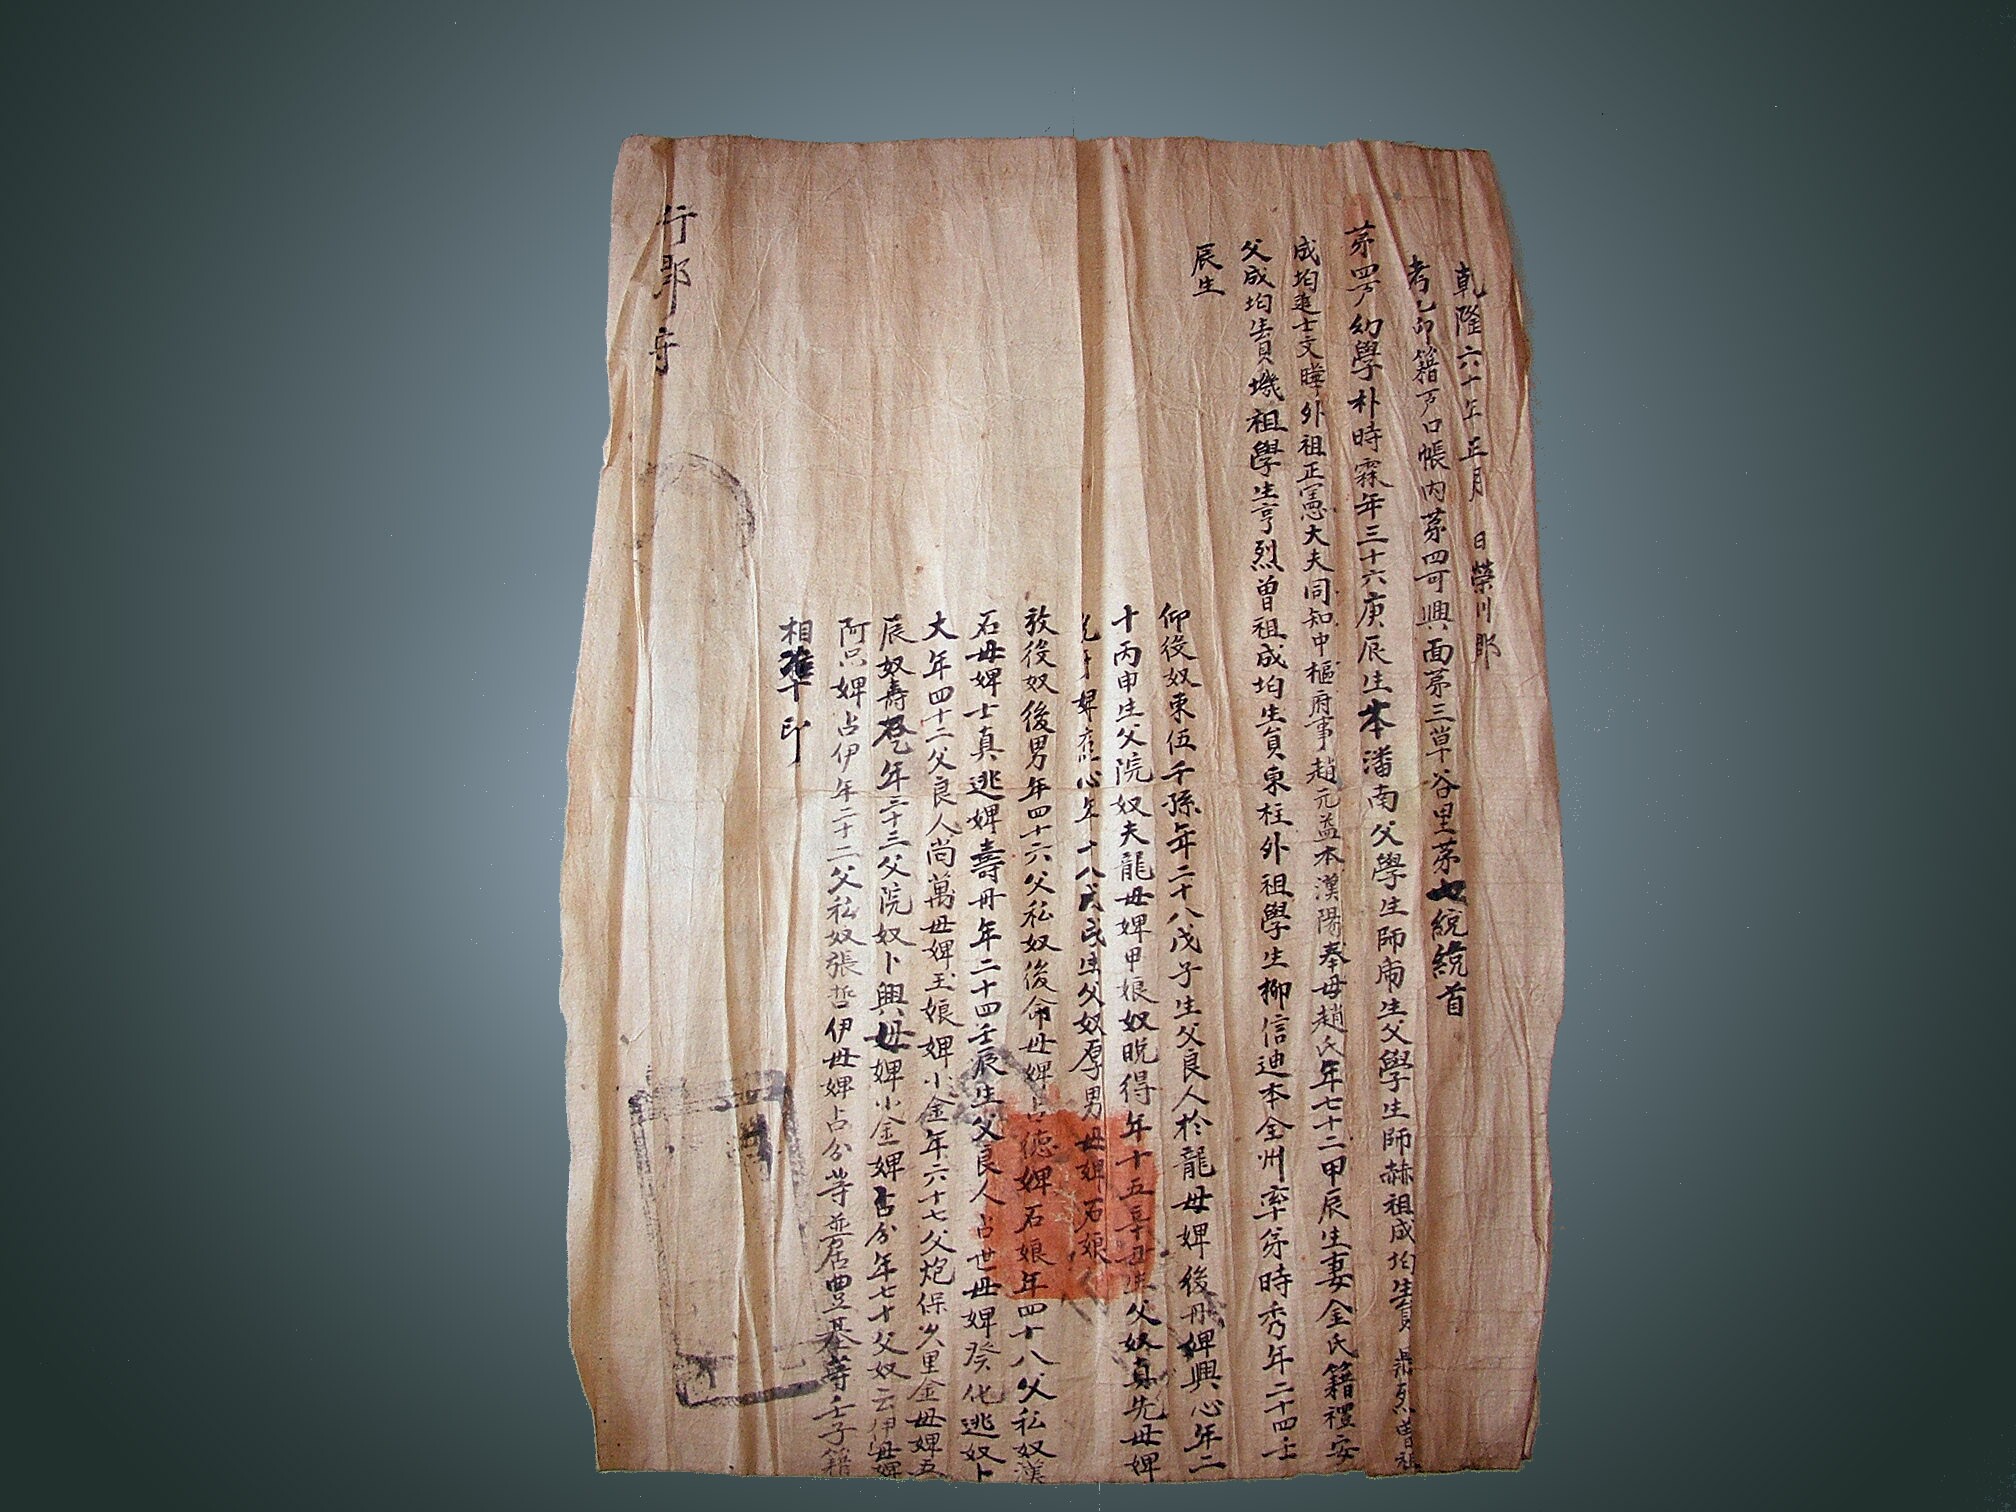 乾隆六十年正月 日榮川郡
考乙卯籍戶口帳內苐四可興面苐三草谷里苐七統統首
苐四戶幼學朴時霖年三十六庚辰生本潘南父學生師 生父學生師赫祖成均生員鼎烈曾祖
成均進士文 外祖正憲大夫同知中樞府事趙元益本漢陽奉母趙氏年七十二甲辰生妻金氏籍禮安
父成均生員 祖學生亨烈曾祖成均生員東柱外祖學生柳信迪本全州率弟時秀年二十四壬
辰生
仰役奴東伍千孫年二十八戊子生父良人於龍母婢後丹婢興心年二
十丙申生父院奴夫龍母婢甲娘奴晩得年十五辛丑生父奴真先母婢
婢 心年十八戊戌生父奴厚男母婢石娘
放役奴後男年四十六父私奴後命母婢占德婢石娘年四十八父私奴漢
石母婢士真逃婢壽丹年二十四壬辰生父良人占世母婢癸化逃奴卜
大年四十二父良人尚萬母婢玉娘婢小金年六十七父炮保火里金母婢五
辰奴壽 年三十三父院奴卜興母婢小金婢占分年七十父奴云伊母婢
阿只婢占伊年二十二父私奴張哲伊母婢占分等並居豊基等壬子籍
相準印
行郡守